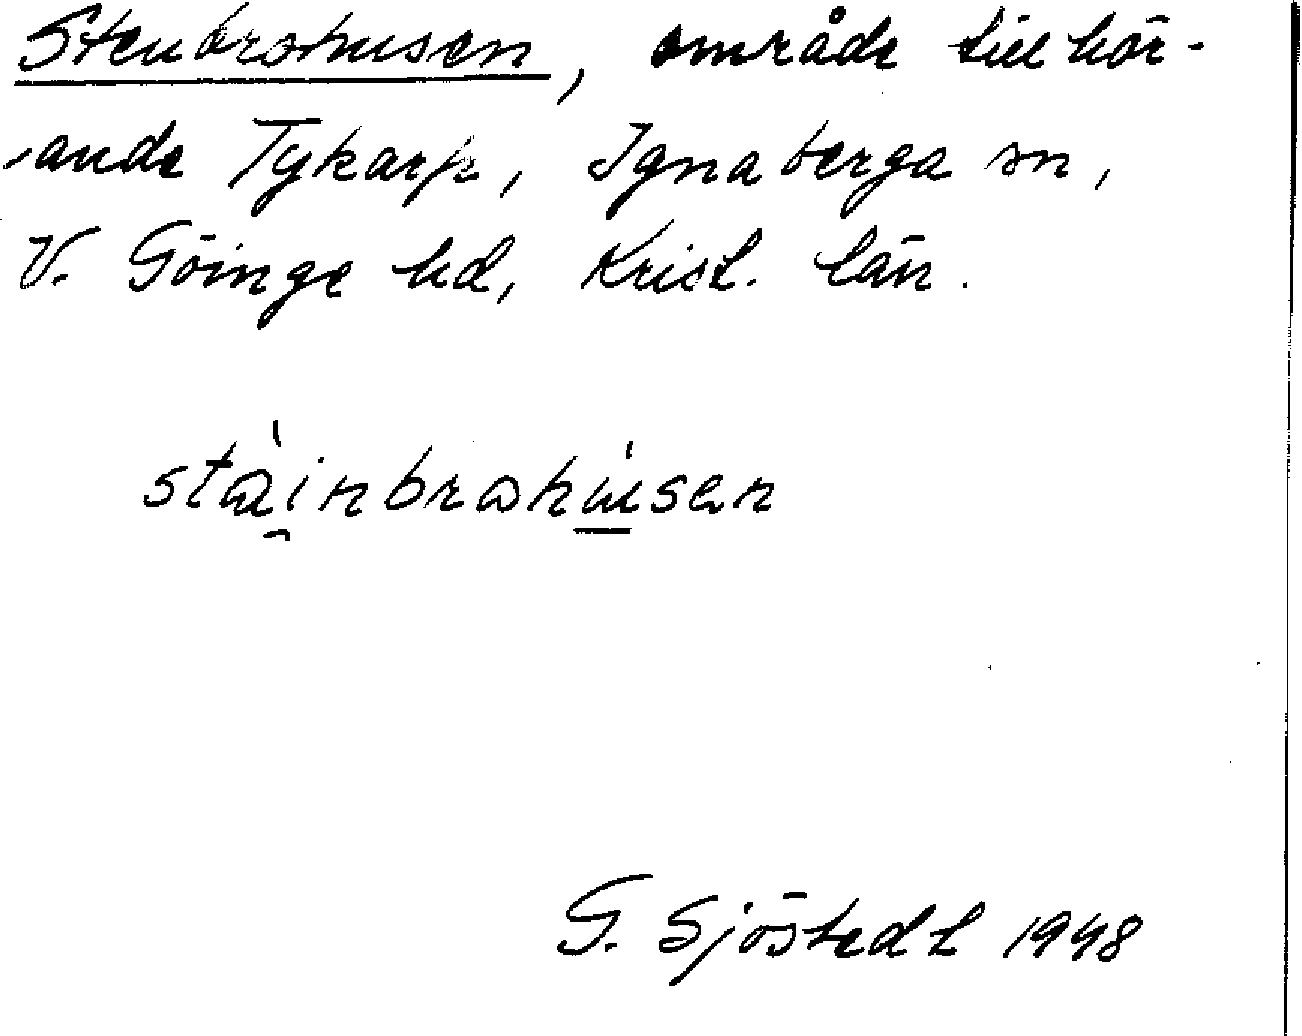 Stenbrotusen, område tillhör-
ande Tykarp, Ignaberga sn,
V. Göinge hd, Krist. län.
stàinbrɷhúsen
G. Sjöstedt 1948